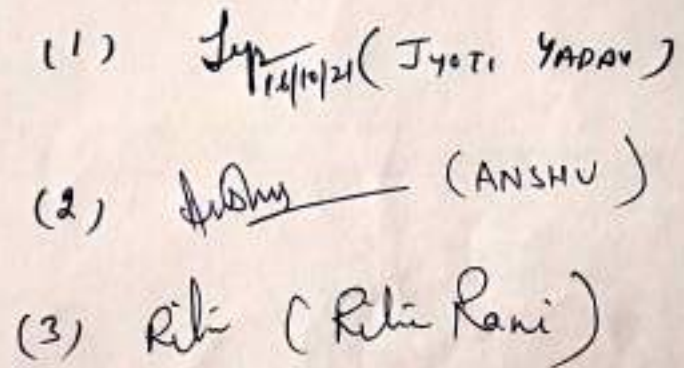 (1) 16/10/21 (JYOTI YADAV)
(2) Anshu (ANSHU)
(3) Ritu (Ritu Rani)